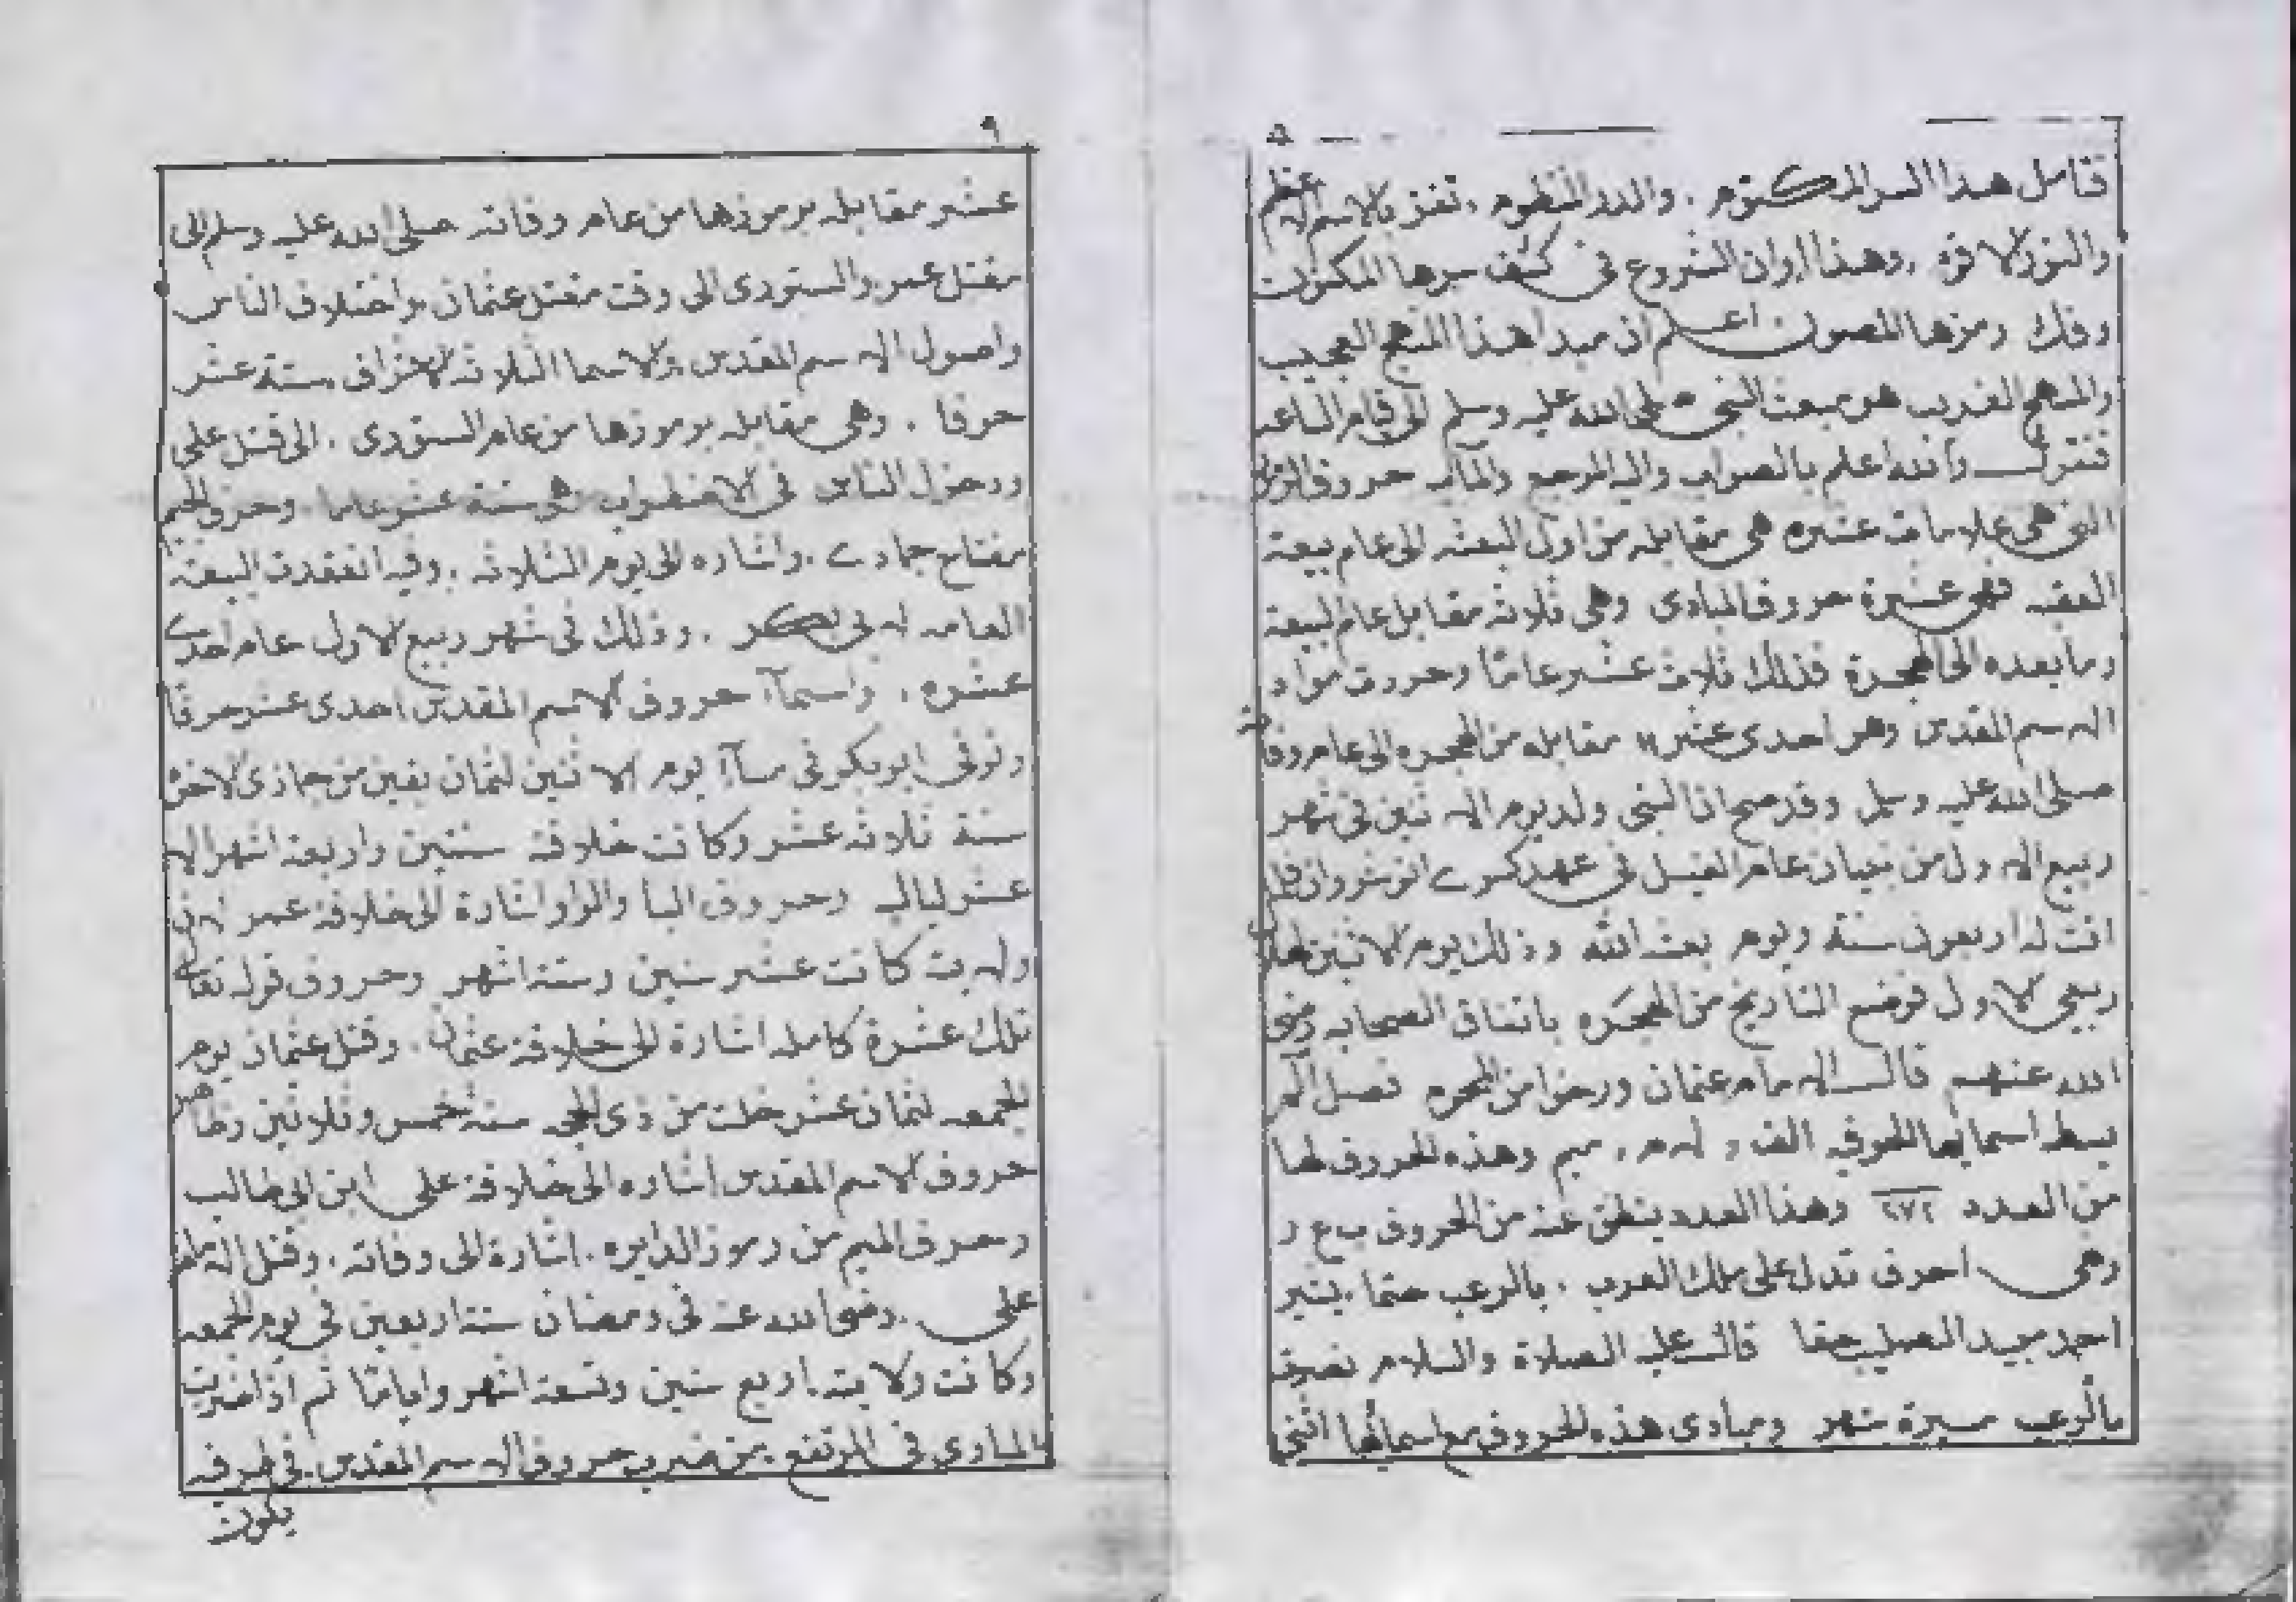 ٥
فتامل هذا السر المكتوم . والدر المنظوم . تفز بالاسم الاعظم
والنور الاقوم . وهذا اوان الشروع فى كشف سرها المكنون
وفك رمزها المصون . اعلم ان مبدا هذا المنهج العجيب
والمنهج الغريب هو مبعث النبى صلى الله عليه وسلم الى قيام الساعه
فنقول والله اعلم بالصواب واليه المرجع والمآب حروف
التى هى علامات عشره هى مقابله من اول البعثه الى عام بيعة
العقبه فهى عشرة حروف المبادى وهى ثلاثه مقابل عام البيعة
وما بعده الى الهجرة فذلك ثلاث عشر عامًا وحروف مواد
الاسم المقدس وهو احدى عشر مقابله من الهجره الى عام وفاته
صلى الله عليه وسلم وقد صح ان النبى ولد يوم الاثنين فى شهر
ربيع الاول من عام الفيل فى عهد كسرى انوشروان فلما
اتت له اربعون سنة ويوم بعثه الله وذلك يوم الاثنين
ربيع الاول فوضع التاريخ من الهجره باتفاق الصحابه رضى
الله عنهم قال الامام عثمان ورخوا من المحرم فصل الم
بسط اسمايها الحرفيه الف ، لام ، ميم وهذه الحروف لها
من العدد ٢٧٢ وهذا العدد ينطق عنه من الحروف ب ع ر
وهى احرف تدل على ملك العرب . بالرعب حتما . يشير
احمد مبيد الصليب حقا قال عليه الصلاة والسلام نصرت
بالرعب مسيرة شهر ومبادى هذه الحروف مع اسمائها اثنى
٩
عشر مقابله برموزها من عام وفاته صلى الله عليه وسلم الى
مقتل عمر والستورى الى وقت مقتل عثمان واختلاف الناس
واصول الاسم المقدس والاسما الثلاثه ستة عشر
حرفا . وهى مقابله برموزها من عام الستورى . الى قتل على
ودخول الناس فى الاضطراب وهى ستة عشر عاما . وحرف الجيم
مفتاح جمادى . واشاره الى يوم الثلاثه . وفيه انعقدت البيعه
العامه لابى بكر . وذلك فى شهر ربيع الاول عام احدى
عشره . واسمآء حروف الاسم المقدس احدى عشر حرفًا
وتوفى ابو بكر فى مسآء يوم الاثنين لثمان بقين من جمادى الاخر
سنة ثلاثه عشر وكانت خلافته سنتين واربعة اشهر الا
عشر ليالى وحروف اليا والواو اشارة الى خلافة عمر لان
ولايته كانت عشر سنين وستة اشهر وحروف قوله تعالى
تلك عشرة كامله اشارة الى خلافة عثمان . وقتل عثمان يوم
الجمعه لثمان عشر خلت من ذى الحجه سنة خمس وثلاثين وظاهر
حروف الاسم المقدس اشاره الى خلافة على ابن ابى طالب
وحرف الميم من رموز الدايره . اشارة الى وفاته . وقتل الامام
على . رضى الله عنه فى رمضان سنة اربعين فى يوم الجمعه
وكانت ولايته اربع سنين وتسعة اشهر واياما ثم اذا ضربت
المبادى فى المرتفع . من ضرب حروف الاسم المقدس . فى طرفيه
يكون